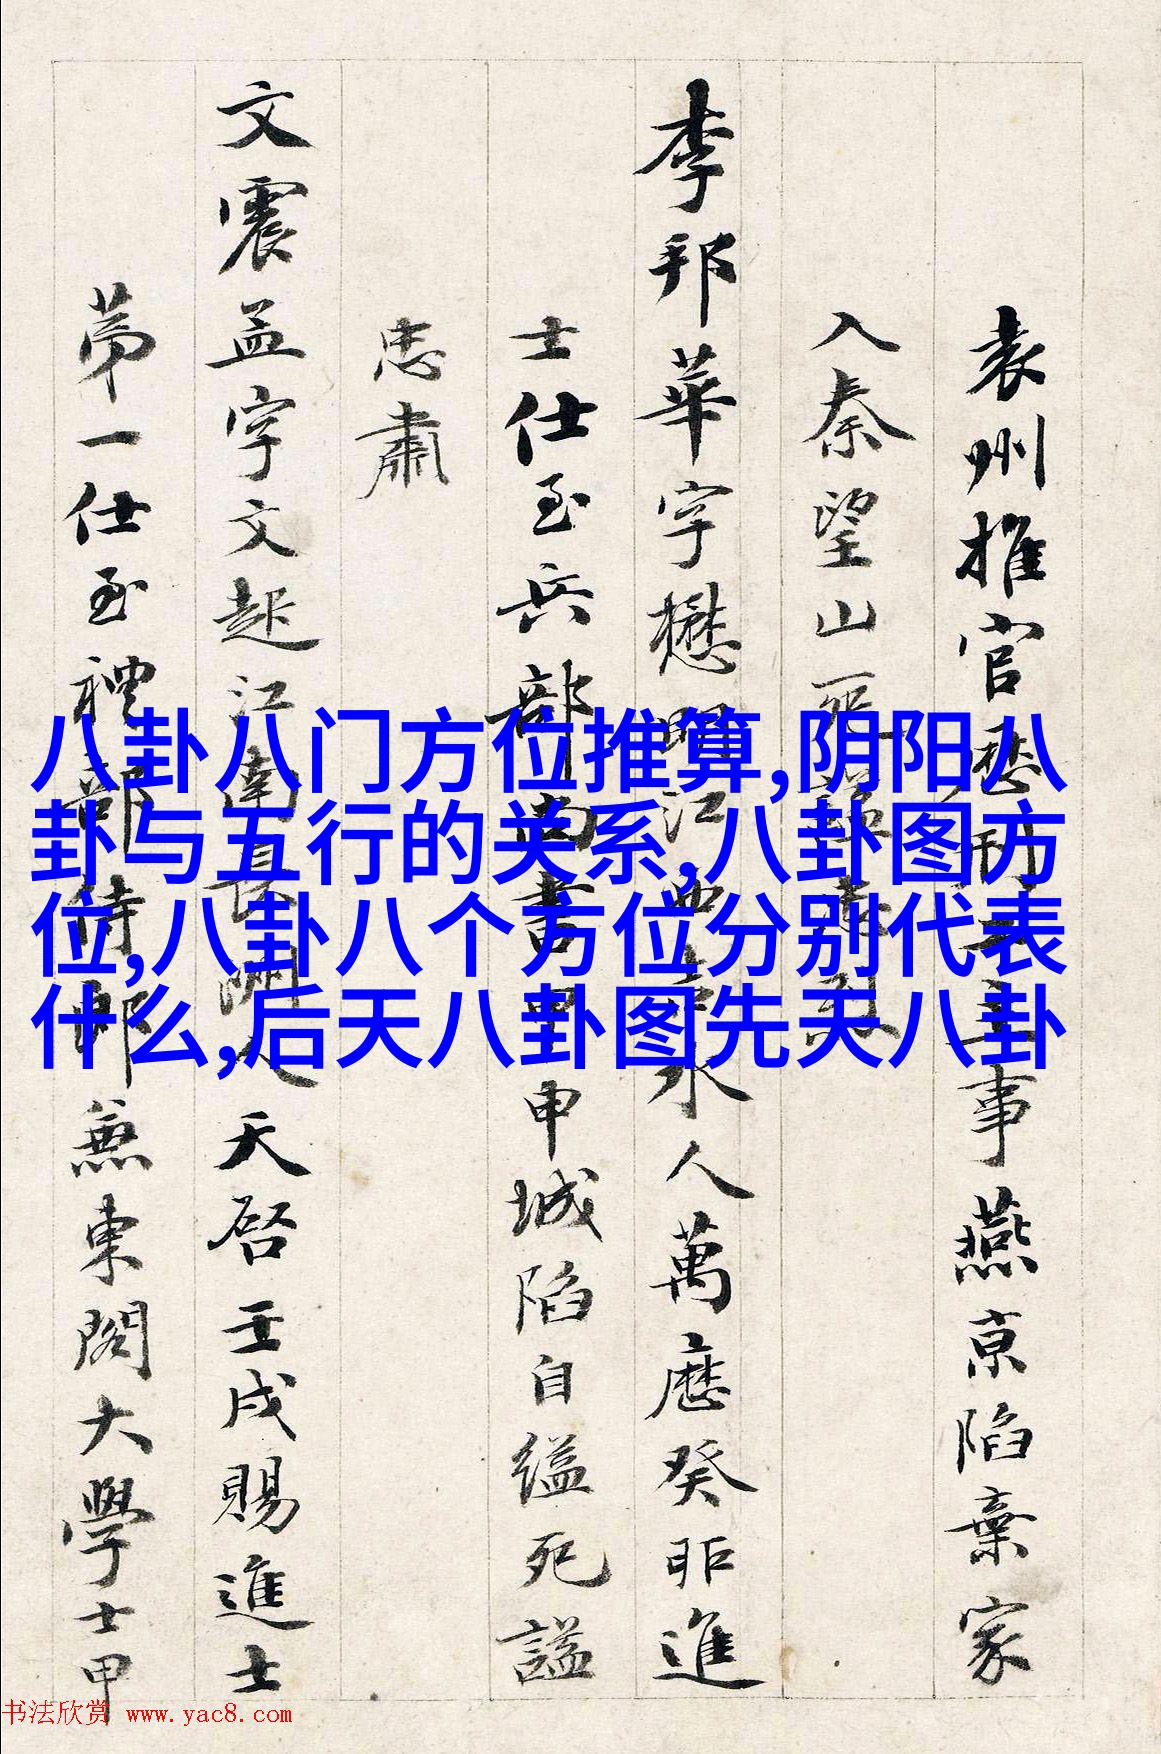 袁州推官歷刑主事燕京陷棄家
入秦望山
李邦華字懋明江西吉水人萬厯癸邜進
士仕至兵部尚書甲申城陷自縊死諡
忠肅
文震孟字文起江南長洲人天啓壬戌賜進士
第一仕至禮部侍郎兼東閣大學士甲
八卦八门方位推算,阴阳八
卦与五行的关系,八卦图方
位,八卦八个方位分别代表
什么,后天八卦图先天八卦
书法欣赏 www.yac8.com